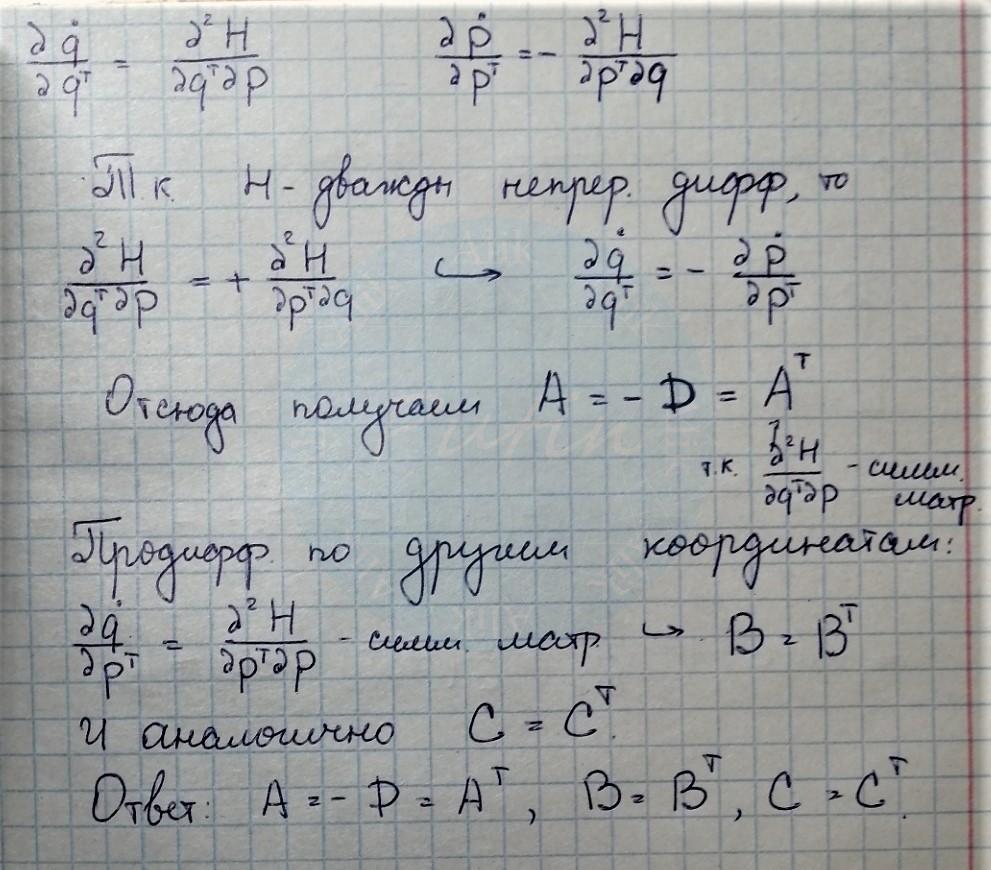 ∂q̇/∂qᵀ = ∂²H/∂qᵀ∂p    ∂ṗ/∂pᵀ = - ∂²H/∂pᵀ∂q
Т.к. H - дважды непрер. дифф, то
∂²H/∂qᵀ∂p = + ∂²H/∂pᵀ∂q ↪ ∂q̇/∂qᵀ = - ∂ṗ/∂pᵀ
Отсюда получаем A = - D = Aᵀ
т.к. ∂²H/∂qᵀ∂p - симм.
матр.
Продифф. по другим координатам:
∂q̇/∂pᵀ = ∂²H/∂pᵀ∂p - симм. матр ↪ B = Bᵀ
И аналогично C = Cᵀ.
Ответ: A = - D = Aᵀ, B = Bᵀ, C = Cᵀ.